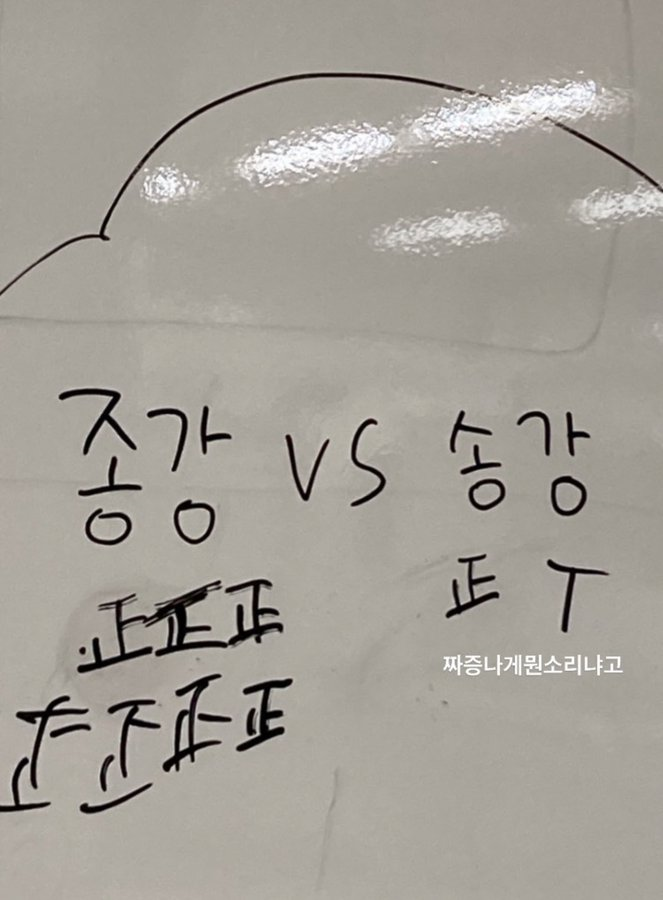 종강 VS 송강
正正正 正丅
짜증나게뭔소리냐고
正正正正